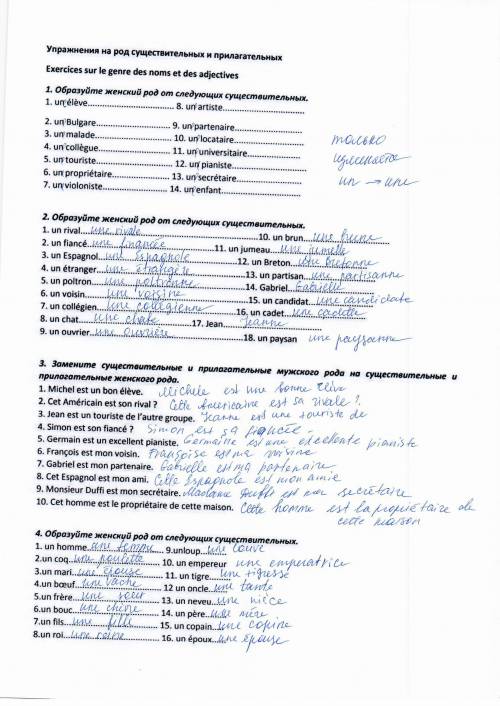 Упражнения на род существительных и прилагательных
Exercices sur le genre des noms et des adjectives
1. Образуйте женский род от следующих существительных.
1. un élève........................ 8. un artiste........................
2. un Bulgare........................ 9. un partenaire........................
3. un malade........................ 10. un locataire........................ только
4. un collègue........................ 11. un universitaire........................
5. un touriste........................ 12. un pianiste........................ изменяется
6. un propriétaire........................ 13. un secrétaire........................ un → une
7. un violoniste........................ 14. un enfant........................
2. Образуйте женский род от следующих существительных.
1. un rival....une rivale........................10. un brun....une brune
2. un fiancé....une fiancée........................11. un jumeau....une jumelle
3. un Espagnol....une Espagnole........................12. un Breton....une Bretonne
4. un étranger....une étrangère........................13. un partisan....une partisanne
5. un poltron....une poltronne........................14. Gabriel....Gabrielle
6. un voisin....une voisine........................15. un candidat....une candidate
7. un collégien....une collégienne........................16. un cadet....une cadette
8. un chat....une chate........................17. Jean....Jeanne
9. un ouvrier....une ouvrière........................18. un paysan une paysanne
3. Замените существительные и прилагательные мужского рода на существительные и
прилогательные женского рода.
1. Michel est un bon élève. Michèle est une bonne élève
2. Cet Américain est son rival ? Cette Américaine est sa rivale ?
3. Jean est un touriste de l'autre groupe. Jeanne est une touriste de
4. Simon est son fiancé ? Simon est sa fiancée.
5. Germain est un excellent pianiste. Germaine est une excellente pianiste
6. François est mon voisin. Françoise est ma voisine
7. Gabriel est mon partenaire. Gabrielle est ma partenaire
8. Cet Espagnol est mon ami. Cette Espagnole est mon amie
9. Monsieur Duffi est mon secrétaire. Madame Duffi est ma secrétaire
10. Cet homme est le propriétaire de cette maison. Cette homme est la propriétaire de
cette maison
4. Образуйте женский род от следующих существительных.
1. un homme....une femme....9.un loup....une louve
2.un coq....une poulette....10. un empereur une emperatrice
3.un mari....une épouse....11. un tigre....une tigresse
4.un bœuf....une vache....12 un oncle....une tante
5.un frère....une sœur....13. un neveu....une nièce
6.un bouc....une chèvre....14. un père....une mère
7.un fils....une fille....15. un copain....une copine
8.un roi....une reine....16. un époux....une épouse